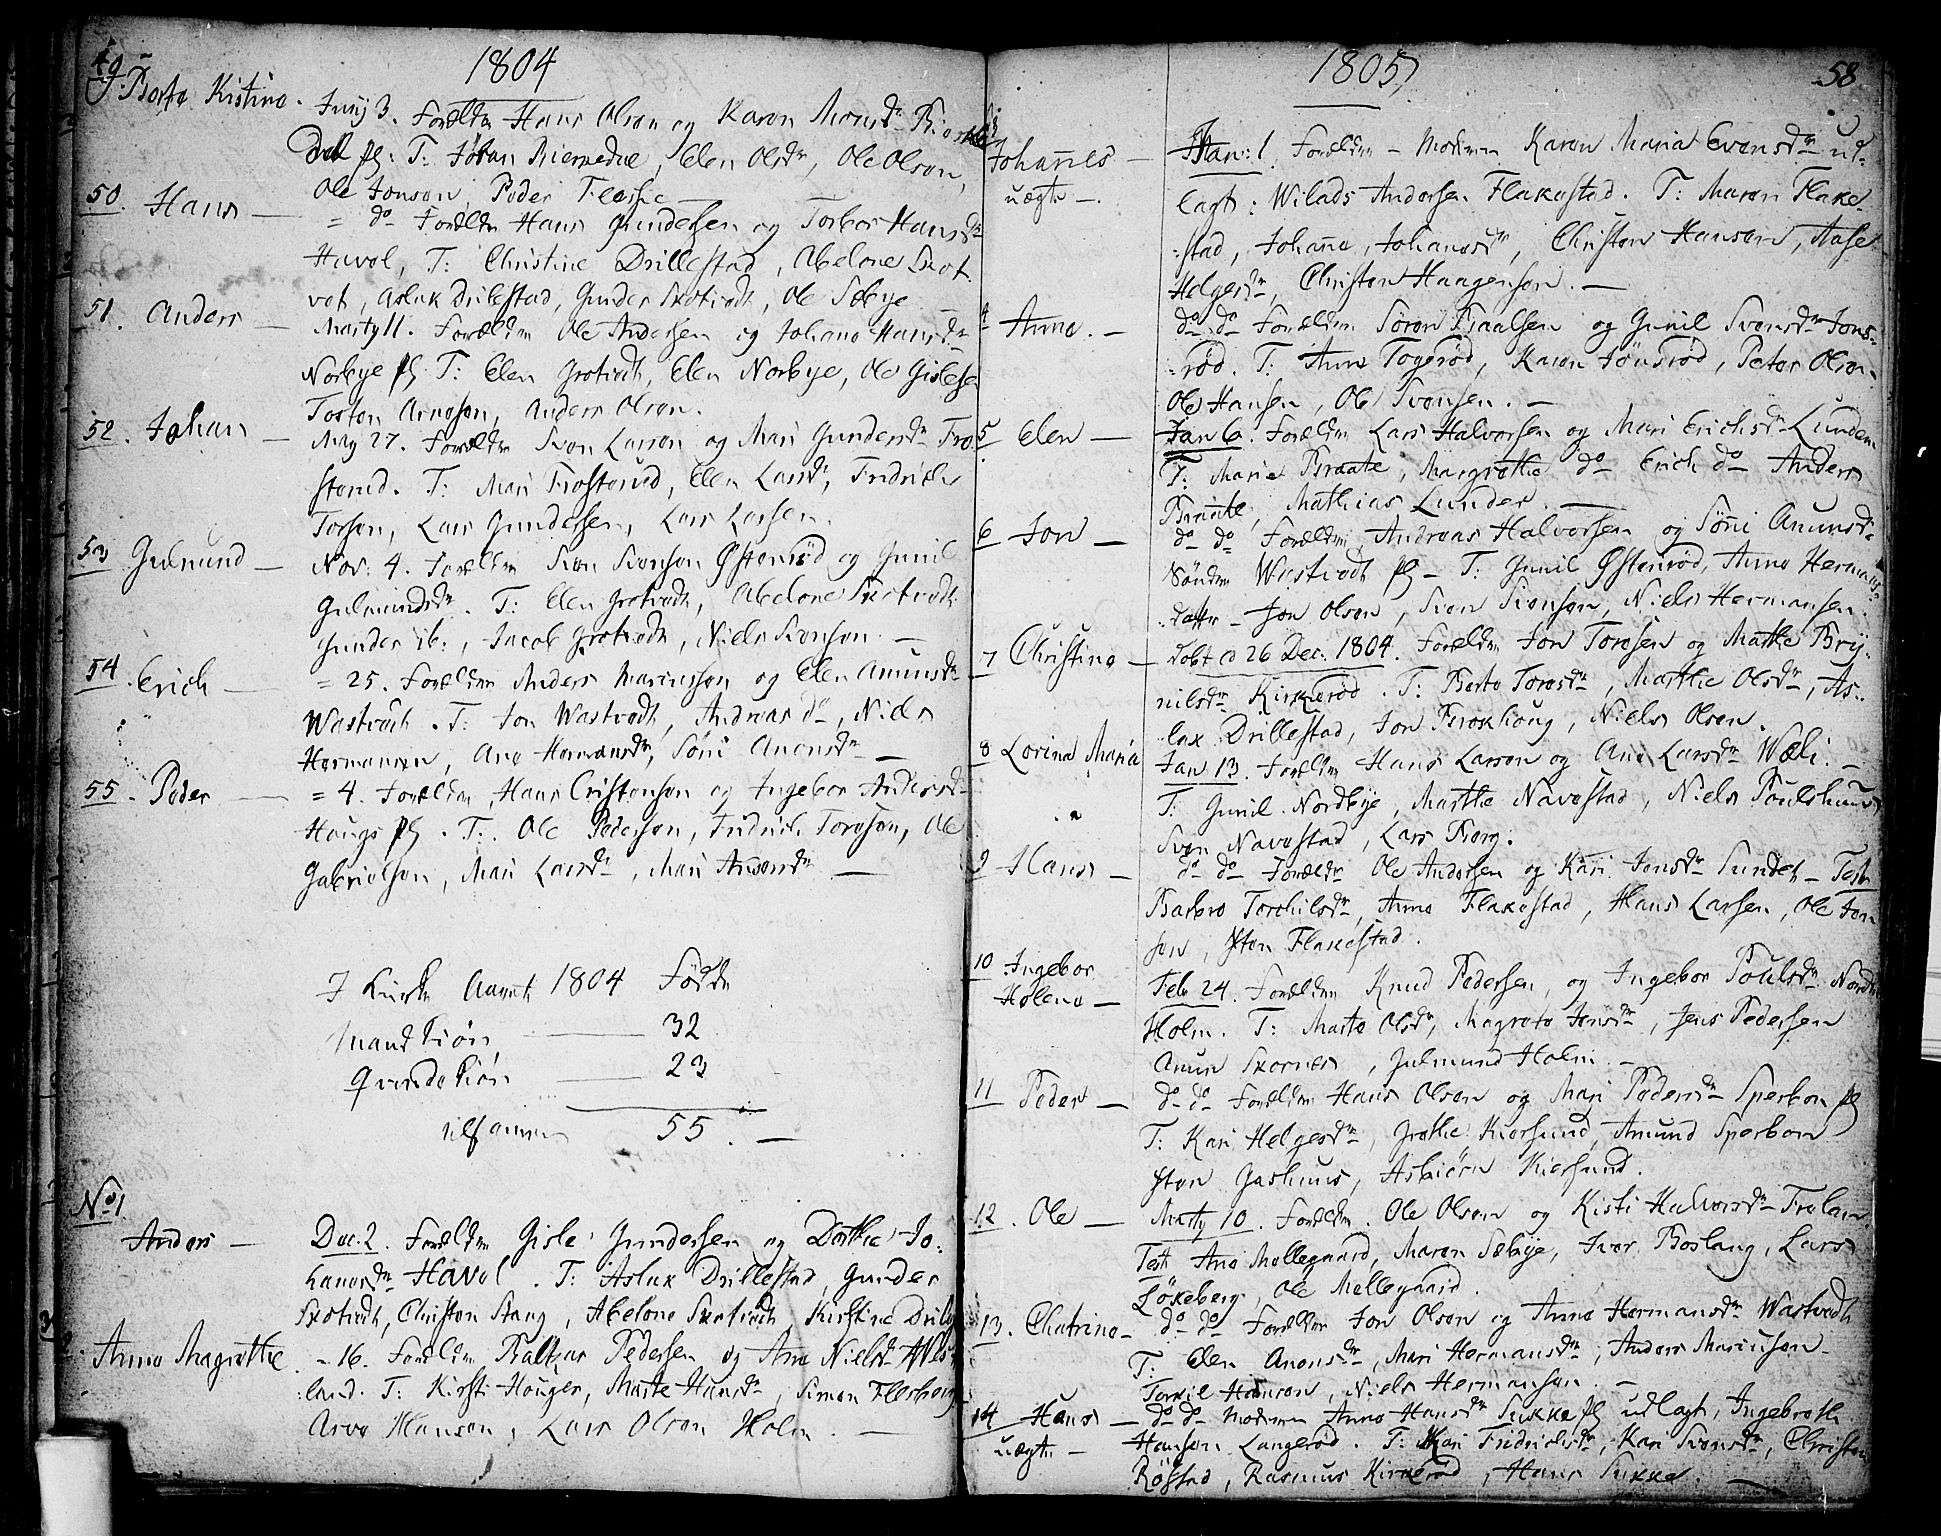 1804
49. Berte Kistine. Junÿ 3. Forældre Hans Olsen og Karen Monsdr Biørke
dal pl: T: Johan Riermedal, Elen Olsdr, Ole Olsen,
Ole Jonsen, Peder Fleshe
50. Hans — = do Forældre Hans Gundersen og Torbor Hansdr
Havol, T: Christine Drillestad, Abelone Skot
vet, Aslak Drilestad, Gunder Skotvedt, Ole Sæbye
51. Anders — Martÿ 11. Forældre Ole Andersen og Johane Hansdr
Norbye pl T: Elen Grotvedt, Elen Norbye, Ole Gislesen
Tosten Arnesen, Anders Olsen.
52. Johan — Maÿ 27. Forældre Sven Larsen og Mari Gundersdr Fro
sterud. T: Mari Frosterud, Elen Larsdr, Fridrich
Torsen, Lars Gundersen, Lars Larsen.
53 Gulmund — Nov: 4. Forældre Sven Svensen Østenrød og Gunil
Gulmundsdr. T: Elen Grotvedt, Abelone Skotvedt
Gunder ib:, Jacob Grotvedt, Niels Svensen. —
54. Erich — = 25. Forældre Anders Mariussen og Elen Amunsdr
Wastvedt. T: Jon Wastvedt, Andreas do, Niels
Hermansen, Ane Hermansdr, Søni Anensdr —
55. Peder — = 4. Forældre Hans Cristensen og Ingebor Andersdr
Hougs pl. T: Ole Pedersen, Fridrich Toresen, Ole
Gabrielsen, Mari Larsdr, Mari Ansendr —
I Kirke Aaret 1804 Fødde
Mandkiøn — 32
Qvindekiøn — 23
tilsamen 55. —
No 1.
Anders — Dec. 2. Forældre Gisle Gundersen og Dorthe Jo-
hanesdr Havol. T: Aslak Drillestad, Gunder
Skotvedt, Christen Stang, Abelone Skotvedt, Kirstine Drile
2. Anne Magrethe — 16. Forældre Baltzar Pedersen og Ane Nielsdr
land. T: Kirsti Houger, Marte Hansdr, Simen Flesberg
Arve Hansen, Lars Olsen Holm. —
1805, 58
3 Johannes — Jan: 1. Forældre - Moderen Karen Maria Evensdr ud-
uægte —. lagt: Wilads Andersen Flakestad. T: Maren Flake-
stad, Johanne Johanesdr, Christen Hansen, Aase
Helgesdr, Christen Haagensen. —
4 Anne. — do do Forældre Søren Paalsen og Gunil Svensdr Jons-
rød. T: Anne Togerød, Karen Jonsrød, Peter Olsen
Ole Hansen, Ole Svensen. —
5 Elen — Jan 6. Forældre Lars Halvorsen og Mari Erichsdr Lunden
T: Marie Braate, Margrethe do Erich do Anders
Braate, Mathias Lunder. —
6 Jon — do do Forældre Andreas Halvorsen og Søni Anunsdr
Søndre Wastvedt pl — T: Gunil Østenrød, Anne Hermans-
datter — Jon Olsen, Sven Svensen, Niels Hermansen.
7 Christine — Døbt d 26 Dec. 1804. Forældre Jon Toresen og Marthe Bry-
nilsdr Kirkerød. T: Berte Toresdr, Marthe Olsdr, As-
lak Drillestad, Jon Brækhoug, Niels Olsen.
8 Lorine Maria Jan 13. Forældre Hans Larsen og Ane Larsdr Wæli. —
T: Gunil Nordbye, Marthe Navestad, Niels Poulshuus
Sven Navestad, Lars Borg.
9 Hans — do do Forældre Ole Andersen og Kari Jensdr Sundet — Test
Barbro Torchilsdr, Anne Flakestad, Hans Larsen, Ole Jen
sen, Sten Flakestad.
10 Ingebor Feb 24. Forældre Knud Pedersen og Ingebor Poulsdr Nordre
Helene — Holm. T: Marte Olsdr, Magrete Jensdr, Jens Pedersen
Anun Skornes, Gulmund Holm. —
11 Peder — do do Forældre Hans Olsen og Mari Pedersdr Sperbon pl
T: Kari Helgesdr, Grethe Kiersund, Amund Sperbon
Sten Gashuus, Asbiørn Kiersund.
12. Ole — Marty 10. Forældre Ole Olsen og Kisti Halvorsdr Frolan
Test Ane Mellegaard, Maren Sæbye, Iver Boslang, Lars
Løkeberg, Ole Mellegaard.
13. Chatrine — do do Forældre Jon Olsen og Anne Hermansdr Wastvedt
T: Elen Anensdr, Mari Hermansdr, Anders Mariusen —
Torkil Hansen, Niels Hermansen. —
14 Hans — do do Moderen Anne Hansdr Sukke pl udlagt, Ingebreth
uægte — Hansen Langerød. T: Mari Fridrichsdr, Kari Svensdr, Christen
Røstad, Rasmus Kirkerød, Hans Sukke. —